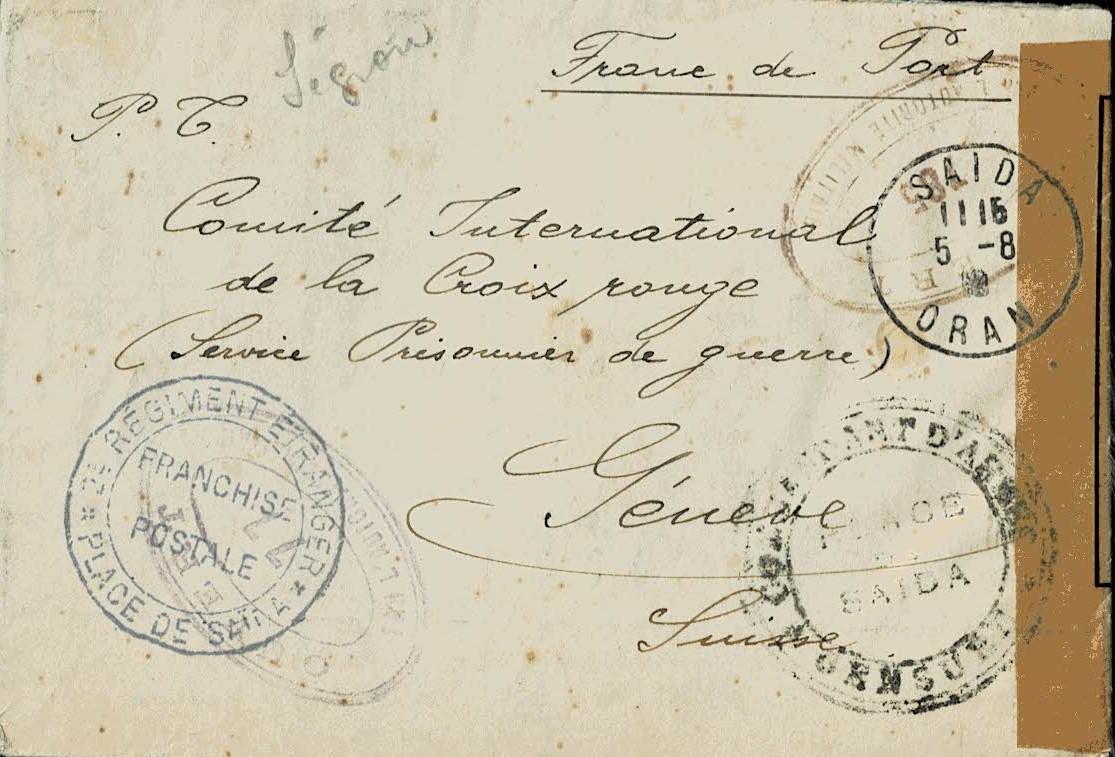 Franc de Port
Légion
P. T.
Comité International
de la Croix rouge
(Service Prisonnier de guerre)
Genève
Suisse
SAIDA
11 15
5 -8
ORAN
L'AUTORITÉ
2E REGIMENT ÉTRANGER
FRANCHISE
POSTALE
* PLACE DE SAÏDA *
D'ARMES
PLACE
DE
SAIDA
CENSURE